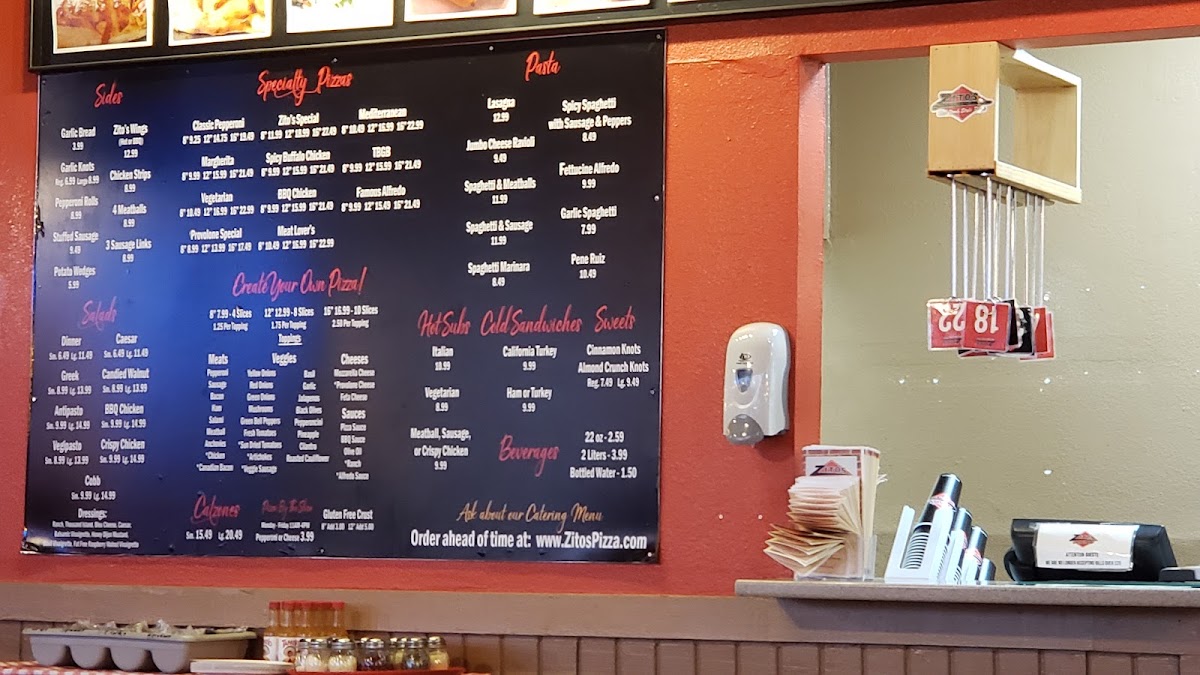 Sides
Garlic Bread
3.99
Garlic Knots
Reg. 6.99 Large 8.99
Pepperoni Rolls
8.99
Stuffed Sausage
9.49
Potato Wedges
5.99
Zito's Wings
(Hot or BBQ)
12.99
Chicken Strips
8.99
4 Meatballs
8.99
3 Sausage Links
8.99
Specialty Pizzas
Classic Pepperoni
8" 9.25 12" 14.75 16" 19.49
Margherita
8" 9.99 12" 15.99 16" 21.49
Vegetarian
8" 10.49 12" 16.99 16" 22.99
Provolone Special
8" 8.99 12" 13.99 16" 17.49
Zito's Special
8" 11.99 12" 18.99 16" 27.49
Spicy Buffalo Chicken
8" 9.99 12" 15.99 16" 21.49
BBQ Chicken
8" 9.99 12" 15.99 16" 21.49
Meat Lover's
8" 10.49 12" 16.99 16" 22.99
Mediterranean
8" 10.49 12" 16.99 16" 22.99
TBGB
8" 9.99 12" 15.99 16" 21.49
Famous Alfredo
8" 9.99 12" 15.49 16" 21.49
Pasta
Lasagna
12.99
Jumbo Cheese Ravioli
9.49
Spaghetti & Meatballs
11.99
Spaghetti & Sausage
11.99
Spaghetti Marinara
8.49
Spicy Spaghetti
with Sausage & Peppers
8.49
Fettucine Alfredo
9.99
Garlic Spaghetti
7.99
Pene Ruiz
10.49
Salads
Dinner
Sm. 6.49 Lg. 11.49
Greek
Sm. 8.99 Lg. 13.99
Antipasto
Sm. 9.99 Lg. 14.99
Vegipasto
Sm. 8.99 Lg. 13.99
Caesar
Sm. 6.49 Lg. 11.49
Candied Walnut
Sm. 8.99 Lg. 13.99
BBQ Chicken
Sm. 9.99 Lg. 14.99
Crispy Chicken
Sm. 9.99 Lg. 14.99
Cobb
Sm. 9.99 Lg. 14.99
Dressings:
Ranch, Thousand Island, Bleu Cheese, Caesar,
Balsamic Vinaigrette, Honey Dijon Mustard,
Vinaigrette, Fat Free Raspberry Walnut Vinaigrette
Create Your Own Pizza!
8" 7.99 - 4 Slices
1.25 Per Topping
12" 12.99 - 8 Slices
1.75 Per Topping
16" 16.99 - 10 Slices
2.50 Per Topping
Toppings
Meats
Pepperoni
Sausage
Bacon
Ham
Salami
Meatball
Anchovies
*Chicken
*Canadian Bacon
Veggies
Yellow Onions
Red Onions
Green Onions
Mushrooms
Green Bell Peppers
Fresh Tomatoes
*Sun Dried Tomatoes
*Artichokes
*Veggie Sausage
Basil
Garlic
Jalapenos
Black Olives
Pepperoncini
Pineapple
Cilantro
Roasted Cauliflower
Cheeses
Mozzarella Cheese
*Provolone Cheese
Feta Cheese
Sauces
Pizza Sauce
BBQ Sauce
Olive Oil
*Ranch
*Alfredo Sauce
Calzones
Sm. 15.49 Lg. 20.49
Pizza By The Slice
Monday - Friday 11AM-4PM
Pepperoni or Cheese 3.99
Gluten Free Crust
8" Add 3.00 12" Add 5.00
Hot Subs
Italian
10.99
Vegetarian
8.99
Meatball, Sausage,
or Crispy Chicken
9.99
Cold Sandwiches
California Turkey
9.99
Ham or Turkey
9.99
Sweets
Cinnamon Knots
Almond Crunch Knots
Reg. 7.49 Lg. 9.49
Beverages
22 oz - 2.59
2 Liters - 3.99
Bottled Water - 1.50
Ask about our Catering Menu
Order ahead of time at: www.ZitosPizza.com
22
18
ATTENTION GUESTS!